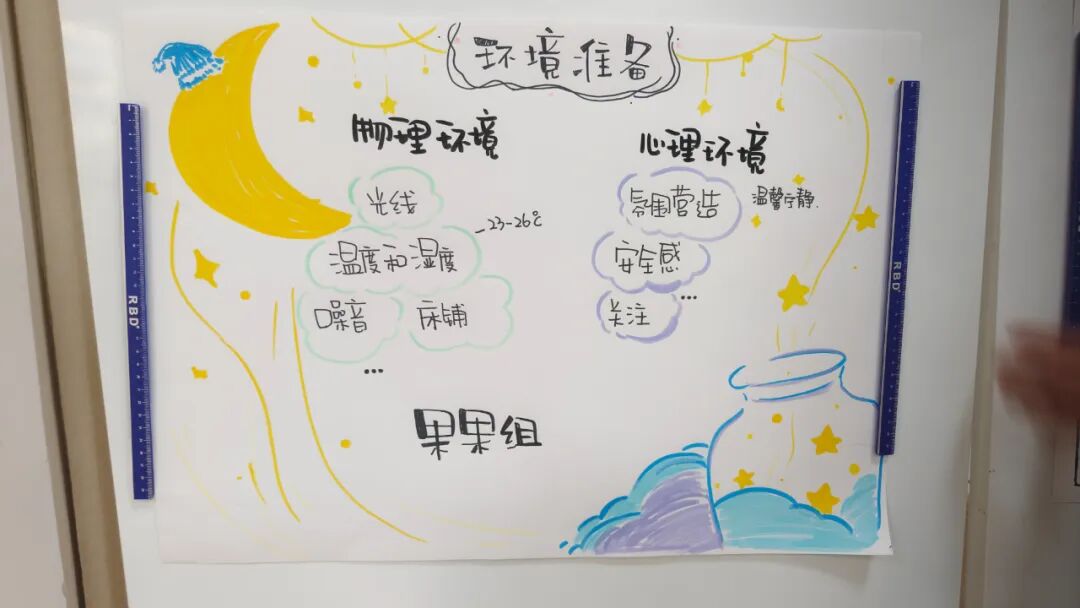 环境准备
物理环境
光线
温度和湿度
23-26℃
噪音
床铺
...
心理环境
氛围营造
温馨宁静.
安全感
关注
...
果果组
RBD
RBD